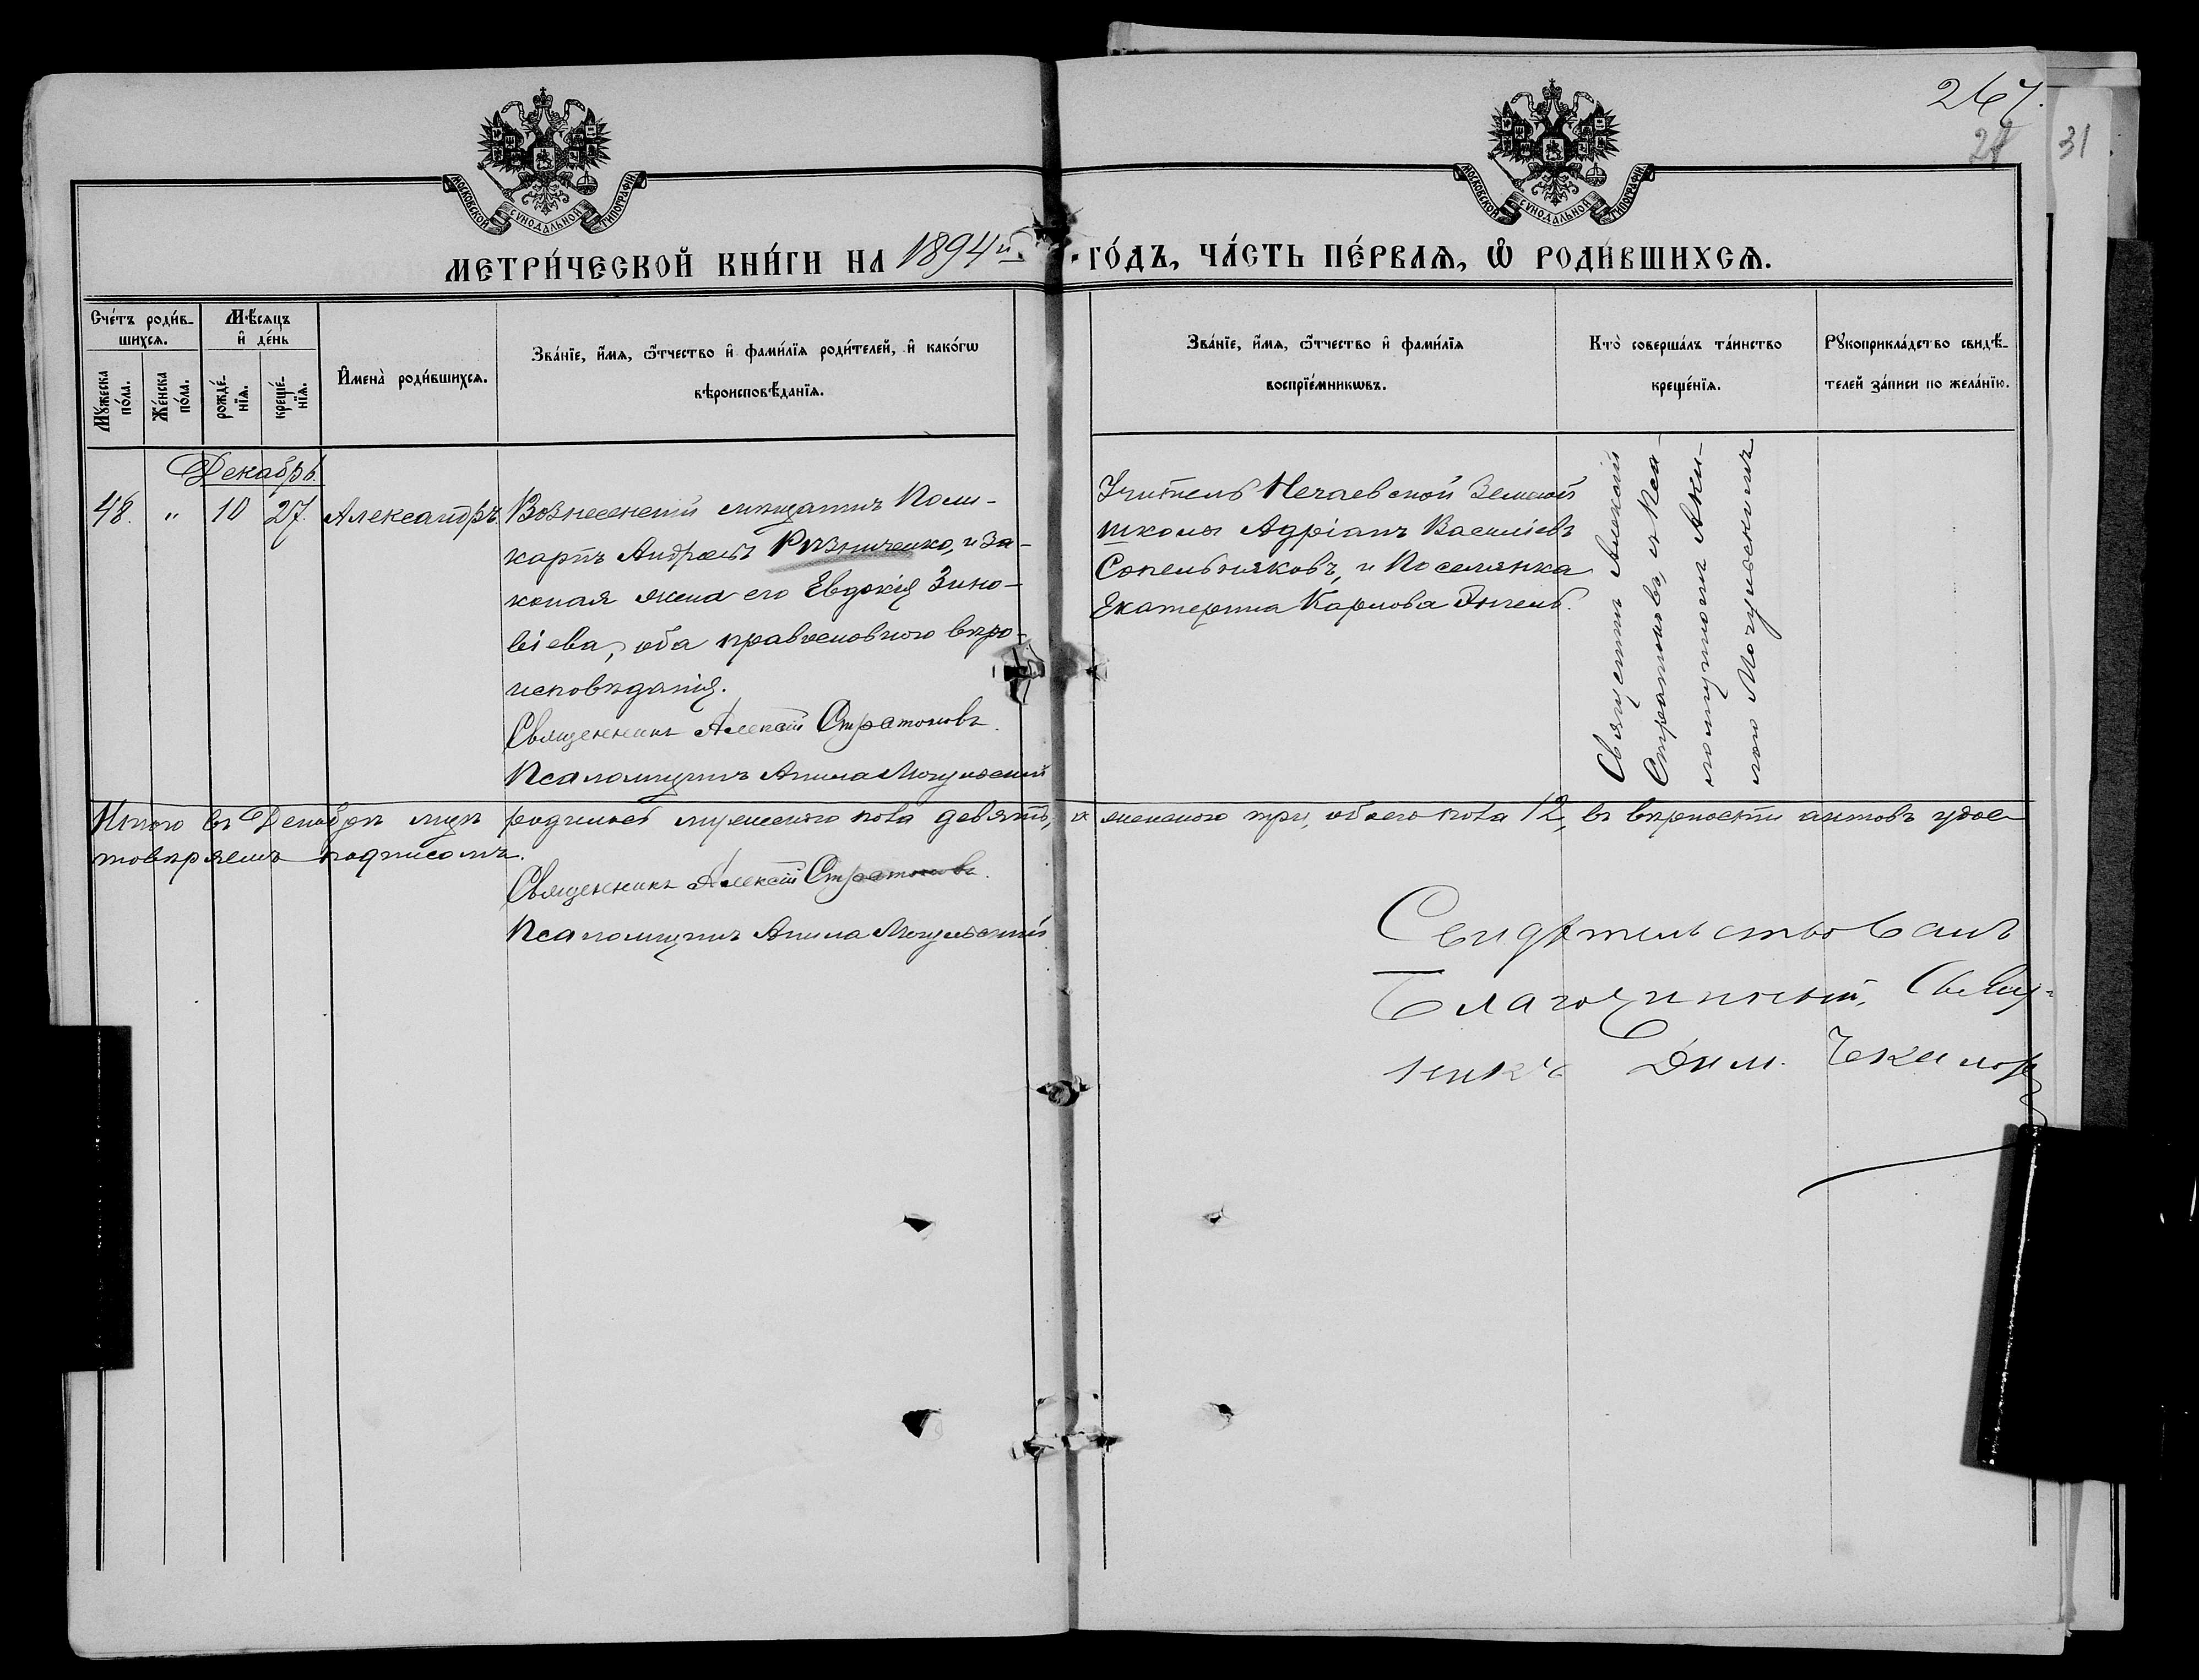 267.
28 31
МОСКОВСКОЙ СѴНОДАЛЬНОЙ ТИПОГРАФІИ
МОСКОВСКОЙ СѴНОДАЛЬНОЙ ТИПОГРАФІИ
МЕТРИ́ЧЕСКОЙ КНИ́ГИ НА 1894й. ГО́ДЪ, ЧА́СТЬ ПЕ́РВАѦ, Ѡ҆ РОДИ́ВШИХСѦ.
Сче́тъ роди́в-
шихсѧ.
Мꙋ́жеска по́ла.
Же́нска по́ла.
Мѣ́сѧцъ
и҆ де́нь
рожде́-
нїѧ.
креще́-
нїѧ.
И҆мена̀ роди́вшихсѧ.
Зва́нїе, и҆́мѧ, ѻ҆́тчество и҆ фами́лїѧ роди́телей, и҆ како́гѡ
вѣроисповѣ́данїѧ.
Зва́нїе, и҆́мѧ, ѻ҆́тчество и҆ фами́лїѧ
воспрїе́мникѡвъ.
Кто̀ соверша́лъ та́инство
креще́нїѧ.
Рꙋкоприкла́дство свидѣ́-
телей за́писи по жела́нїю.
Декабрь
48. " 10 27. Александръ.
Вознесенскій мѣщанинъ Поли-
карпъ Андреевъ Рѣзниченко, и за-
конная жена его Евдокія Зино-
віева, оба православного вѣро-
исповѣданія.
Священникъ Алексій Стратоновъ.
Псаломщикъ Акила Могульскій
Учитель Нечаевской Земской
школы Адріанъ Васильевъ
Сопельняковъ, и Поселянка
Екатерина Карлова Энгель.
Священникъ Алексій
Стратоновъ, и Пса-
ломщикомъ Аки-
лою Могульскимъ
Итого въ Декабрѣ мцѣ родилось мужеского пола девять, и женского три, обоего пола 12, въ вѣрности актовъ удос-
товѣряемъ подписомъ.
Священникъ Алексій Стратоновъ.
Псаломщикъ Акила Могульскій
Свидѣтельствовалъ
Благочинный, Свящ-
никъ Дим.